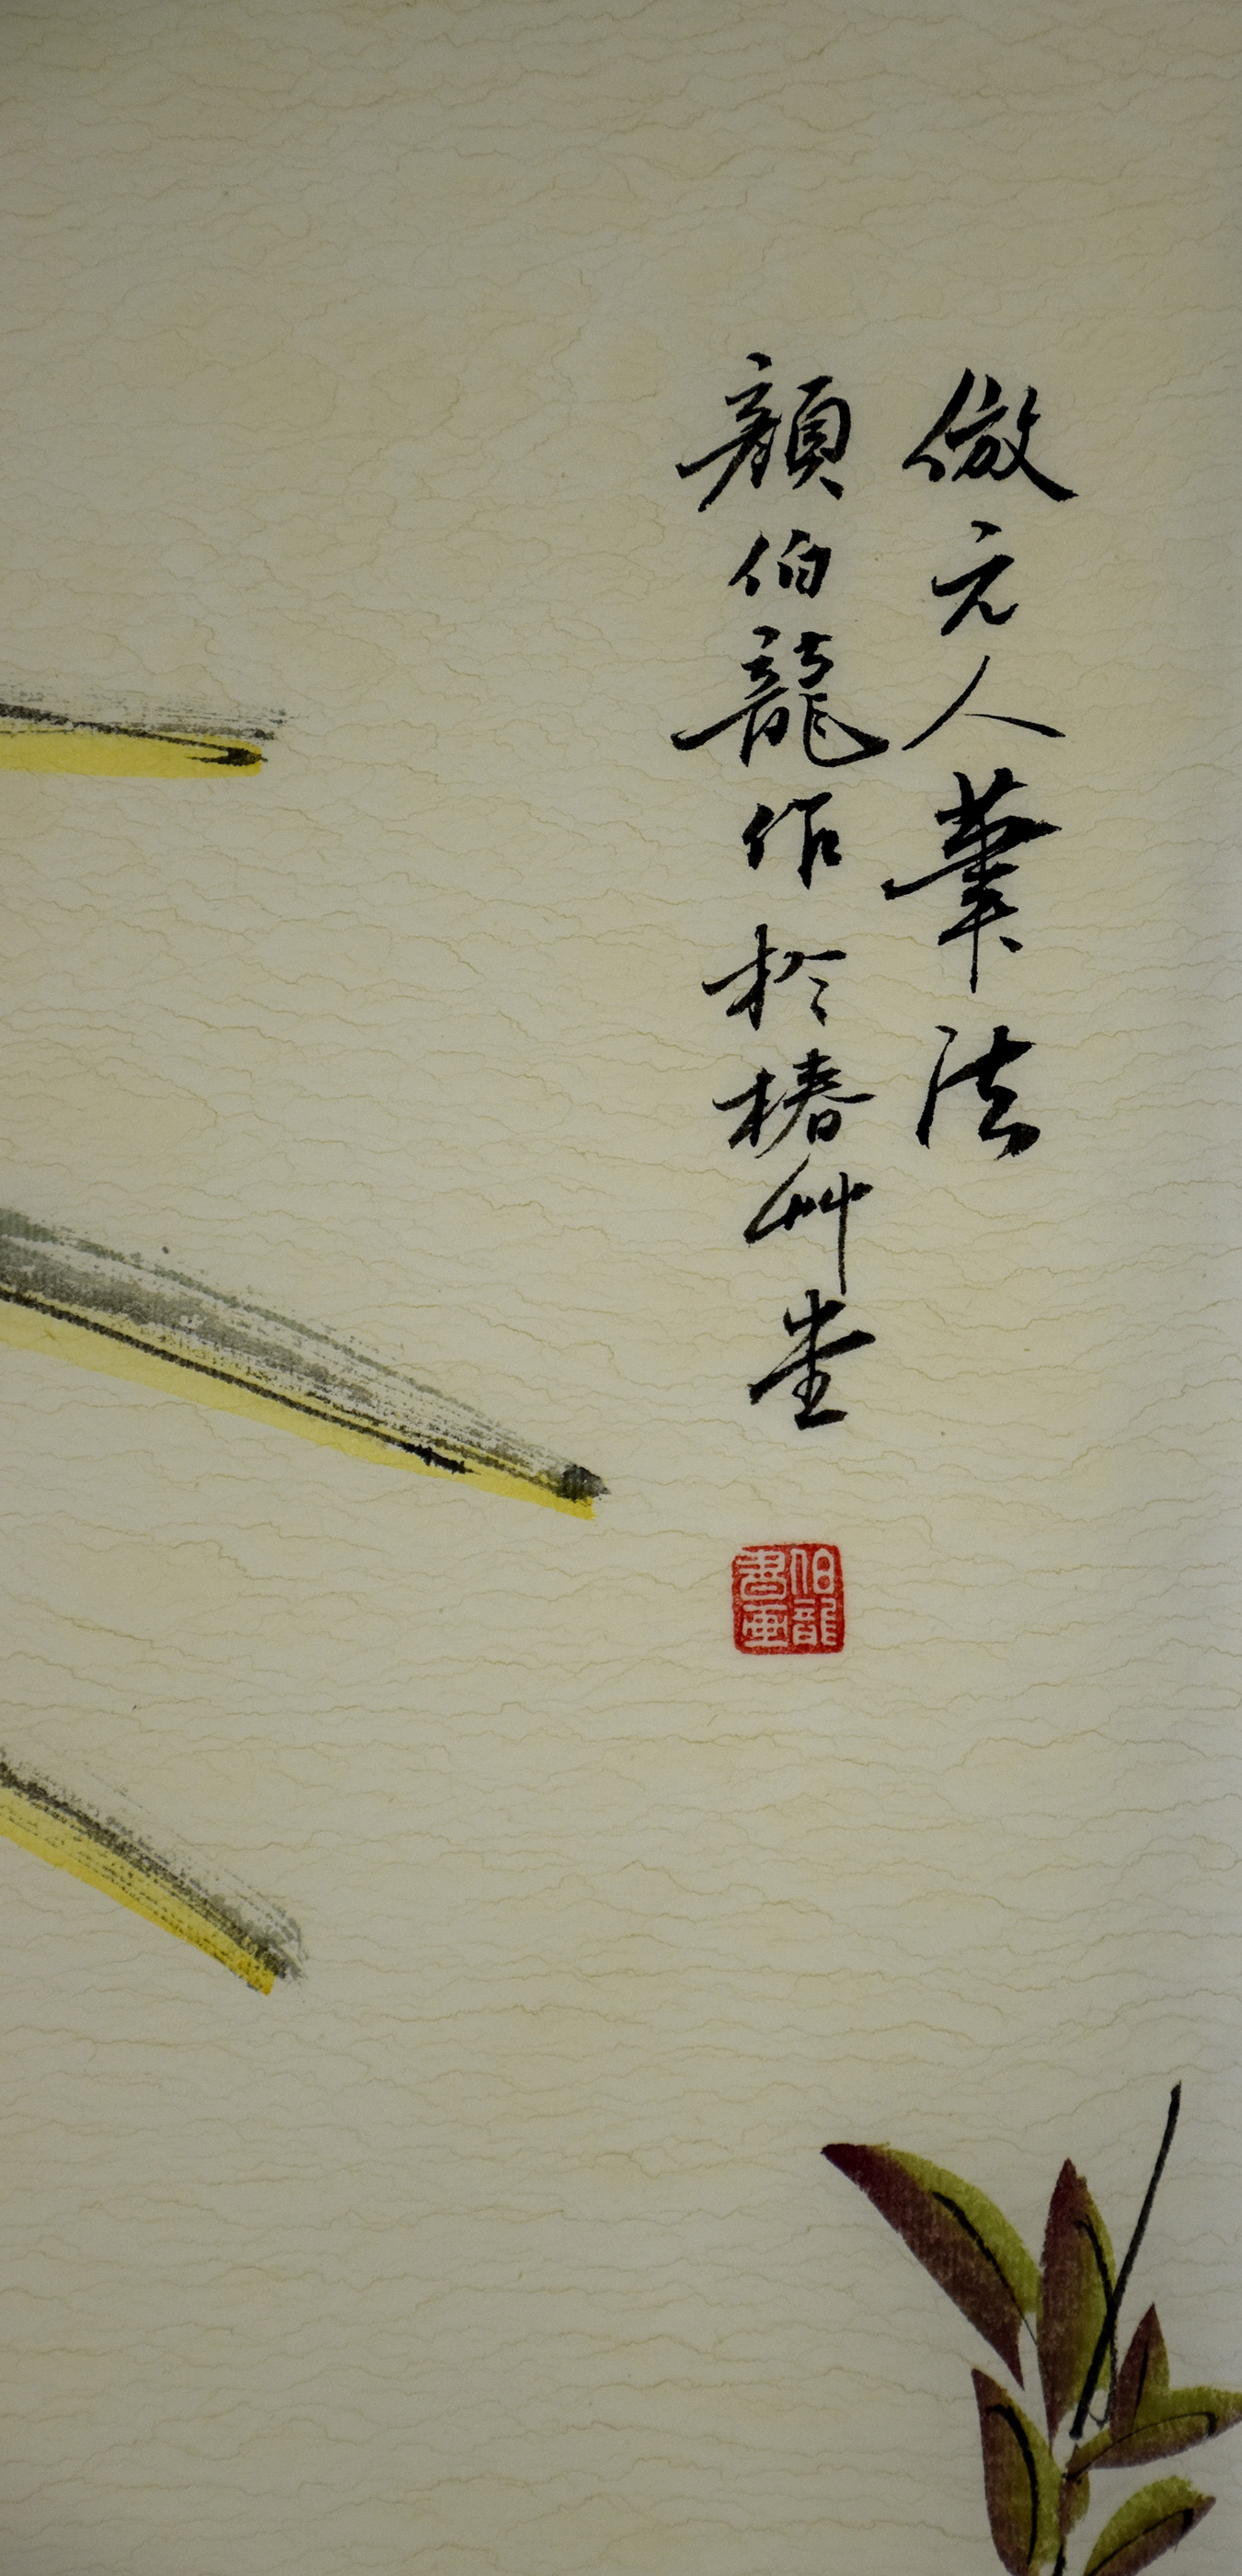 倣元人筆法
顏伯龍作於椿艸堂
伯龍書画